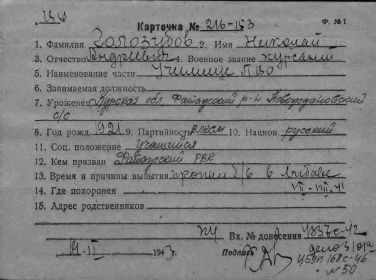 Ф. №1
Карточка № 216-153
1. Фамилия Голозубов 2. Имя Николай
3. Отчество Андреевич 4. Военное звание курсант
5. Наименование части Училище ПВО
6. Занимаемая должность
7. Уроженец Курская обл. Фатежский р-н
с/с
8. Год рожд. 921 9. Партийность ВЛКСМ 10. Национ. русский
11. Соц. положение учащийся
12. Кем призван Фатежский РВК
13. Время и причины выбытия пропал б/в в Либаве
14. Где похоронен VI-VII-41
15. Адрес родственников
Вх. № донесения с-42
1943 г. Подпись
168с-46
№50